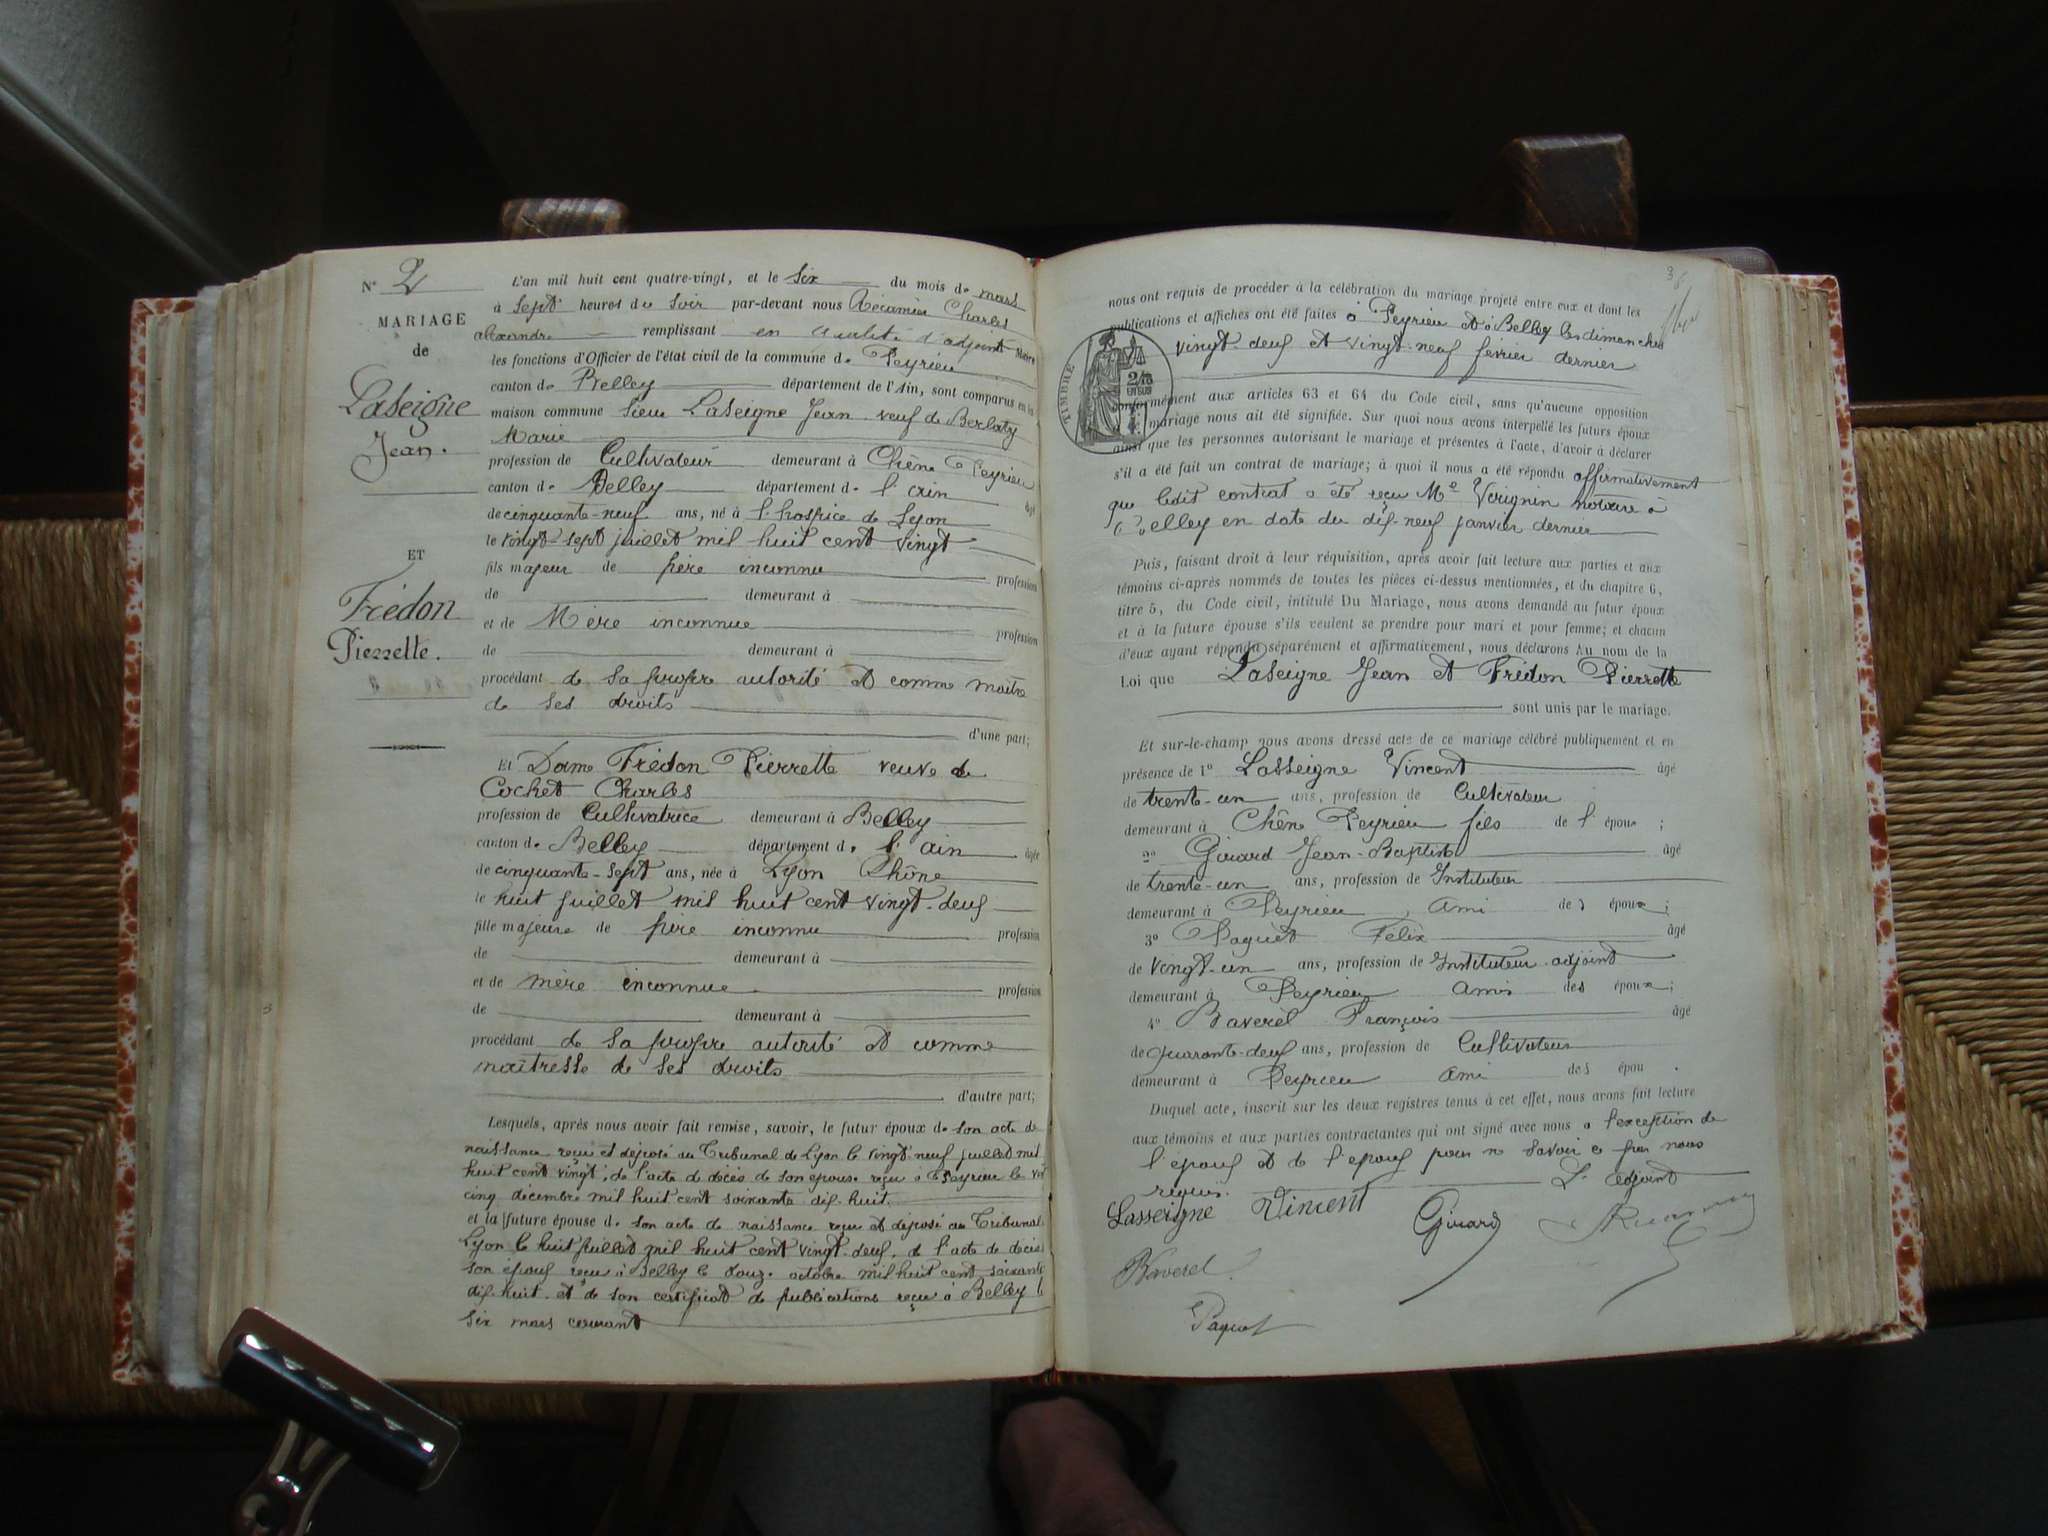 N° 2
MARIAGE
de
Laseigne
Jean.
ET
Frédon
Pierrette.
L'an mil huit cent quatre-vingt, et le six du mois de mars
à sept heures du soir par-devant nous Récamier Charles
alexandre remplissant en qualité d'adjoint Maire
les fonctions d'Officier de l'état civil de la commune de Peyrieu
canton de Belley département de l'Ain, sont comparus en la
maison commune sieur Laseigne Jean veuf de
Marie
profession de Cultivateur demeurant à Chêne Peyrieu
canton de Belley département de l'ain âgé
de cinquante-neuf ans, né à l'hospice de Lyon
le vingt-sept juillet mil huit cent vingt
fils majeur de père inconnu profession
de demeurant à
et de Mère inconnue profession
de demeurant à
procédant de sa propre autorité et comme maître
de ses droits
d'une part;
Et Dame Frédon Pierrette veuve de
Cochet Charles
profession de Cultivatrice demeurant à Belley
canton de Belley département de l'ain âgée
de cinquante-sept ans, née à Lyon Rhône
le huit juillet mil huit cent vingt-deux
fille majeure de père inconnu profession
de demeurant à
et de mère inconnue profession
de demeurant à
procédant de sa propre autorité et comme
maîtresse de ses droits
d'autre part;
Lesquels, après nous avoir fait remise, savoir, le futur époux de son acte de
naissance reçu et déposé au Tribunal de Lyon le vingt neuf juillet mil
huit cent vingt, de l'acte de décès de son épouse reçu à Peyrieu le
cinq décembre mil huit cent soixante dix-huit.
et la future épouse de son acte de naissance reçu et déposé au Tribunal
Lyon le huit juillet mil huit cent vingt-deux, de l'acte de décès
son époux reçu à Belley le douze octobre mil huit cent soixante
dix-huit et de son certificat de publications reçu à Belley le
six mars courant
nous ont requis de procéder à la célébration du mariage projeté entre eux et dont les
publications et affiches ont été faites à Peyrieu et à Belley les dimanches
vingt-deux et vingt-neuf février dernier
TIMBRE
conformément aux articles 63 et 64 du Code civil, sans qu'aucune opposition
mariage nous ait été signifiée. Sur quoi nous avons interpellé les futurs époux
ainsi que les personnes autorisant le mariage et présentes à l'acte, d'avoir à déclarer
s'il a été fait un contrat de mariage; à quoi il nous a été répondu affirmativement
que ledit contrat a été reçu Me notaire à
Belley en date du dix-neuf janvier dernier
Puis, faisant droit à leur réquisition, après avoir fait lecture aux parties et aux
témoins ci-après nommés de toutes les pièces ci-dessus mentionnées, et du chapitre 6,
titre 5, du Code civil, intitulé Du Mariage, nous avons demandé au futur époux
et à la future épouse s'ils veulent se prendre pour mari et pour femme; et chacun
d'eux ayant répondu séparément et affirmativement, nous déclarons Au nom de la
Loi que Laseigne Jean et Frédon Pierrette
sont unis par le mariage.
Et sur-le-champ nous avons dressé acte de ce mariage célébré publiquement et en
présence de 1° Lasseigne Vincent âgé
de trente-un ans, profession de Cultivateur
demeurant à Chêne Peyrieu fils de l'époux;
2° Girard Jean-Baptiste âgé
de trente-un ans, profession de Instituteur
demeurant à Peyrieu ami des époux;
3° Paquet Félix âgé
de vingt-un ans, profession de Instituteur adjoint
demeurant à Peyrieu amis des époux;
4° Baverel François âgé
de quarante-deux ans, profession de Cultivateur
demeurant à Peyrieu ami des épou .
Duquel acte, inscrit sur les deux registres tenus à cet effet, nous avons fait lecture
aux témoins et aux parties contractantes qui ont signé avec nous à l'exception de
l'époux et de l'épouse pour ne savoir ce par nous
requis. L'adjoint
Lasseigne Vincent Girard
Baverel
Paquet